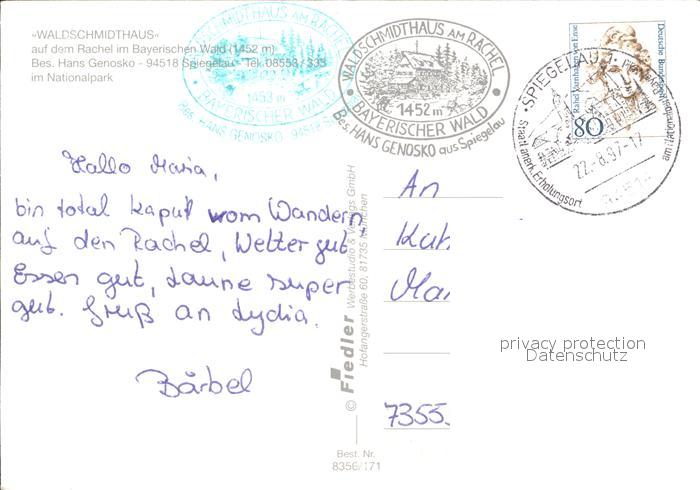 »WALDSCHMIDTHAUS«
auf dem Rachel im Bayerischen Wald (1452 m)
Bes. Hans Genosko - 94518 Spiegelau - Tel. 08553/333
im Nationalpark
WALDSCHMIDTHAUS AM RACHEL
1453 m
BAYERISCHER WALD
Bes. HANS GENOSKO 94518
WALDSCHMIDTHAUS AM RACHEL
1452 m
BAYERISCHER WALD
Bes. HANS GENOSKO aus Spiegelau
Rahel Varnhagen von Ense
Deutsche Bundespost
80
SPIEGELAU 1
22.-8.97-17
Staatl. anerk. Erholungsort
Hallo Maria,
bin total kaput vom Wandern
auf den Rachel, Wetter gut,
Essen gut, Laune super
gut. Gruß an Lydia.
Bärbel
© Fiedler Werbestudio & Verlags GmbH
Hofangerstraße 60, 81735 München
An
Kat
Mar
7355
privacy protection
Datenschutz
Best. Nr.
8356/171